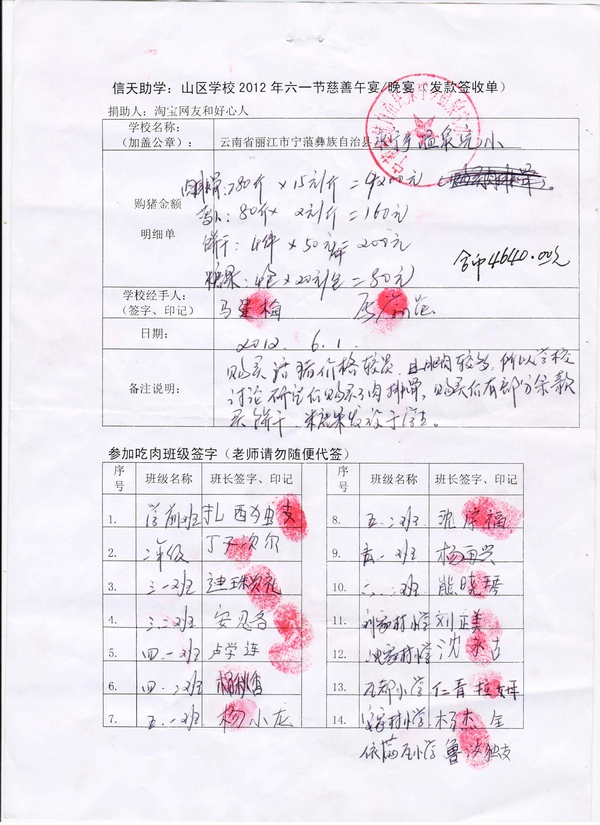 信天助学：山区学校 2012 年六一节慈善午宴/晚宴（发款签收单）
捐助人：淘宝网友和好心人
学校名称：
（加盖公章）：
云南省丽江市宁蒗彝族自治县永宁乡温泉完小
购猪金额
明细单
肉排骨：280斤 × 15元/斤 = 4200元
80斤 × 2元/斤 = 160元
饼干：4件 × 50元/件 = 200元
糖果：4 × 20元/ = 80元
合币4640.00元
学校经手人：
（签字、印记）
马建梅
日期：
2012. 6. 1.
备注说明：
购买活猪价格较贵，且肥肉较多，所以学校
讨论研究后购买了肉排骨，购买后有部分余款
买饼干、糖果发放于学生
参加吃肉班级签字（老师请勿随便代签）
序号 班级名称 班长签字、印记 序号 班级名称 班长签字、印记
1. 学前班 扎西独支 8. 五.二班 沈学福
2. 二年级 丁次尔 9. 六.一班 杨
3. 三.一班 迪珠次礼 10. 六.二班 熊晓琴
4. 三.二班 安 11. 刘家村小学 刘正美
5. 四.一班 卢学连 12. 沈家村小学 沈
6. 四.二班 杨秋香 13. 瓦都小学 仁青拉姆
7. 五.一班 杨小龙 14. 家村小学 杨杰全
依满瓦小学 鲁 独支